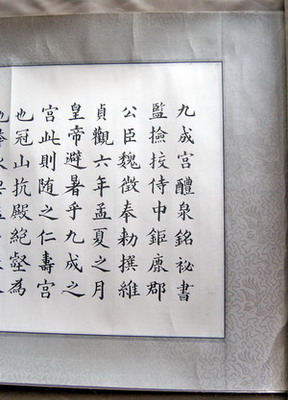 九成宮醴泉銘祕書
監撿挍侍中鉅鹿郡
公臣魏徵奉勑撰維
貞觀六年孟夏之月
皇帝避暑乎九成之
宮此則随之仁壽宮
也冠山抗殿絕壑為